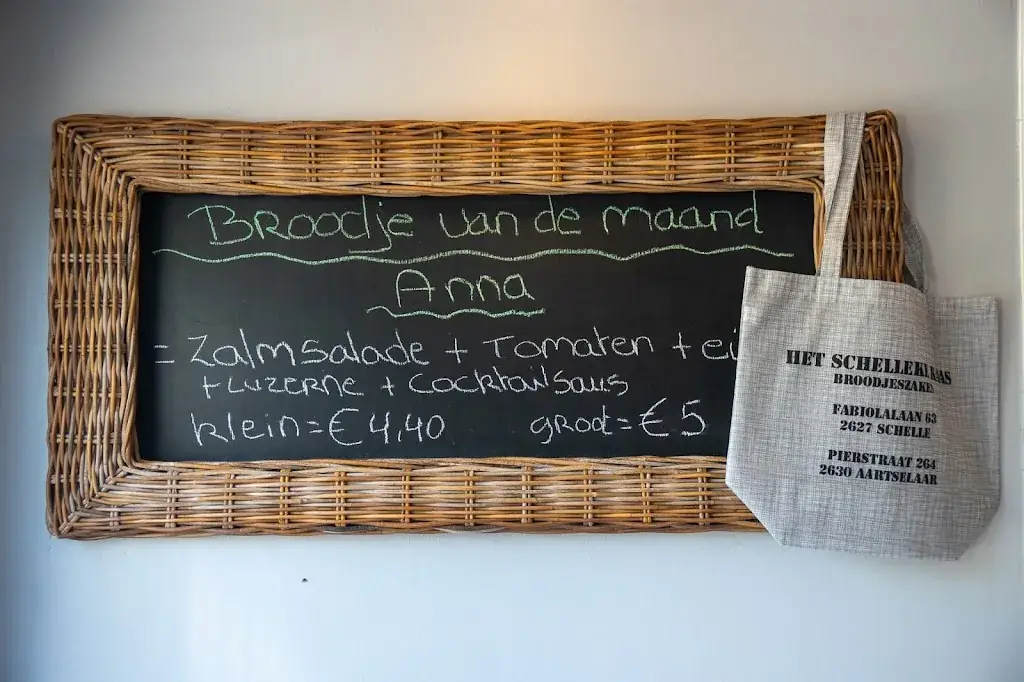 Broodje van de maand
Anna
= Zalmsalade + Tomaten + ei
+ Luzerne + Cocktailsaus
klein = € 4,40 groot = € 5
HET SCHELLEKLAAS
BROODJESZAKEN
FABIOLALAAN 63
2627 SCHELLE
PIERSTRAAT 264
2630 AARTSELAAR